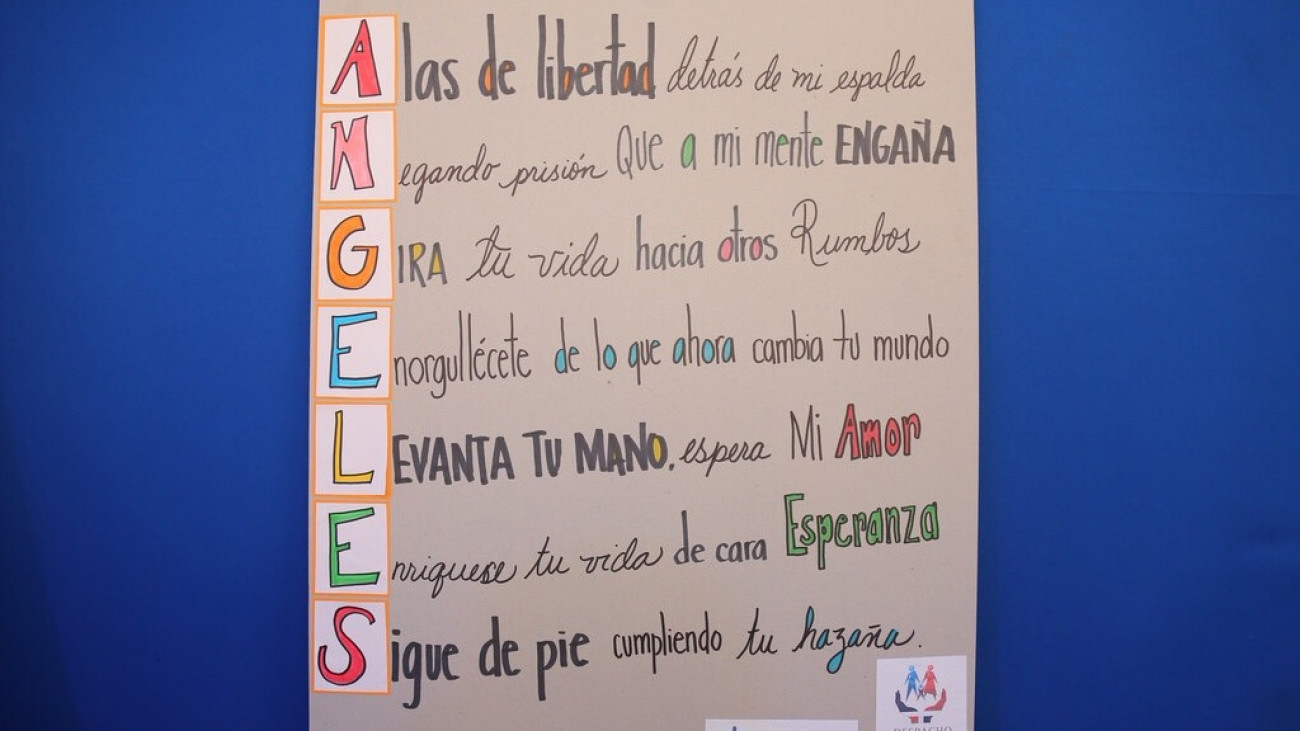 Alas de libertad detrás de mi espalda
Negando prisión Que a mi mente ENGAÑA
GIRA tu vida hacia otros Rumbos
Enorgullécete de lo que ahora cambia tu mundo
LEVANTA TU MANO. espera Mi Amor
Enriquese tu vida de cara Esperanza
Sigue de pie cumpliendo tu hazaña.
DESPACHO